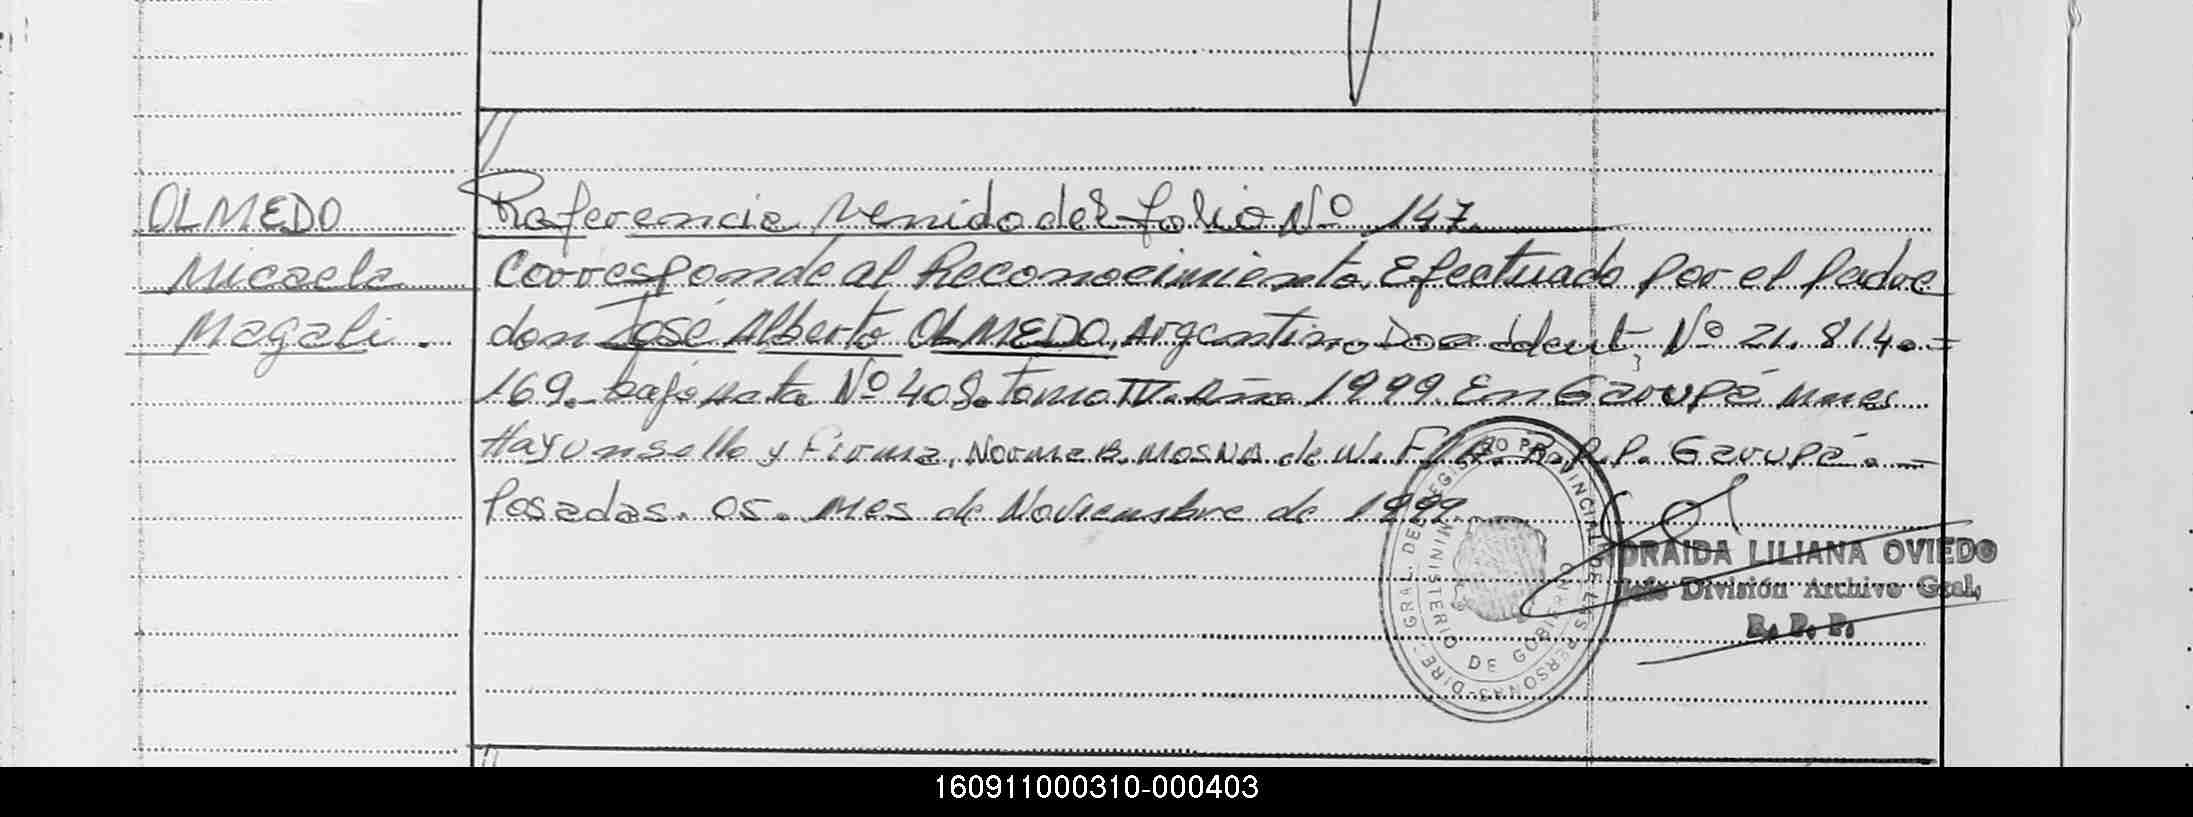 OLMEDO
Micaela
Magali.
Referencia Venido del folio Nº 147.
Corresponde al Reconocimiento. Efectuado por el padre
don José Alberto OLMEDO, Argentino Doc Ident, Nº 21.814.=
169.- bajo Acta Nº 408. tomo IV. Año 1999. En Garupá Mnes
Hay un sello y firma, Norma B. MOSNA de W. R.P.P. Garupá.-
Posadas. 05. Mes de Noviembre de 1999.
DIREC. GRAL. DEL REGISTRO PROVINCIAL DE LAS PERSONAS
MINISTERIO DE GOBIERNO
ORAIDA LILIANA OVIEDO
Jefe División Archivo Gral.
R. P. P.
160911000310-000403